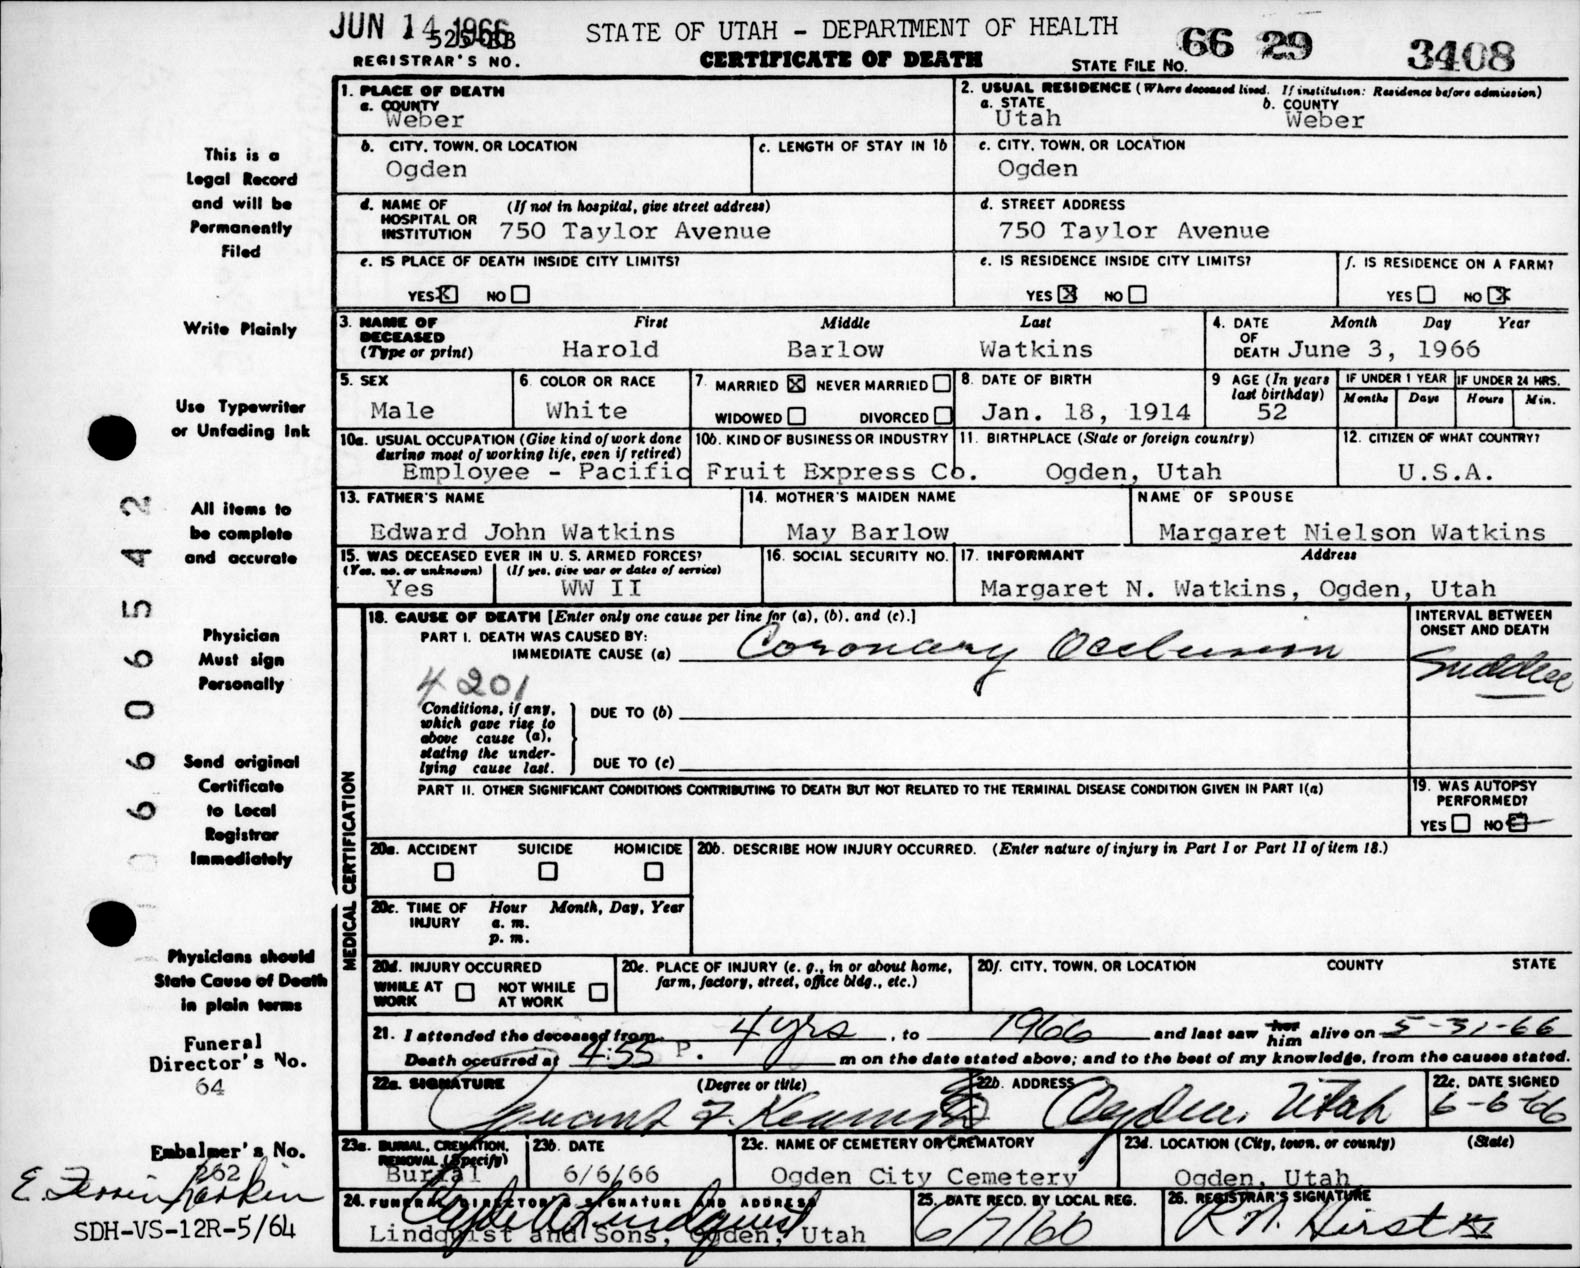 JUN 14 1966 STATE OF UTAH - DEPARTMENT OF HEALTH 66 29 3408
REGISTRAR'S NO. CERTIFICATE OF DEATH STATE FILE NO.
This is a
Legal Record
and will be
Permanently
Filed
Write Plainly
Use Typewriter
or Unfading Ink
All items to
be complete
and accurate
Physician
Must sign
Personally
Send original
Certificate
to Local
Registrar
Immediately
Physicians should
State Cause of Death
in plain terms
Funeral
Director's No.
64
Embalmer's No.
262
E. Ferrin Larkin
SDH-VS-12R-5/64
66 0 6 5 4 2
1. PLACE OF DEATH
a. COUNTY
Weber
2. USUAL RESIDENCE (Where deceased lived. If institution: Residence before admission)
a. STATE b. COUNTY
Utah Weber
b. CITY, TOWN, OR LOCATION c. LENGTH OF STAY IN 1b c. CITY, TOWN, OR LOCATION
Ogden Ogden
d. NAME OF (If not in hospital, give street address) d. STREET ADDRESS
HOSPITAL OR
INSTITUTION 750 Taylor Avenue 750 Taylor Avenue
e. IS PLACE OF DEATH INSIDE CITY LIMITS? e. IS RESIDENCE INSIDE CITY LIMITS? f. IS RESIDENCE ON A FARM?
YES X NO YES X NO YES NO X
3. NAME OF First Middle Last 4. DATE Month Day Year
DECEASED OF
(Type or print) Harold Barlow Watkins DEATH June 3, 1966
5. SEX 6. COLOR OR RACE 7. MARRIED X NEVER MARRIED 8. DATE OF BIRTH 9 AGE (In years IF UNDER 1 YEAR IF UNDER 24 HRS.
last birthday) Months Days Hours Min.
Male White WIDOWED DIVORCED Jan. 18, 1914 52
10a. USUAL OCCUPATION (Give kind of work done 10b. KIND OF BUSINESS OR INDUSTRY 11. BIRTHPLACE (State or foreign country) 12. CITIZEN OF WHAT COUNTRY?
during most of working life, even if retired)
Employee - Pacific Fruit Express Co. Ogden, Utah U.S.A.
13. FATHER'S NAME 14. MOTHER'S MAIDEN NAME NAME OF SPOUSE
Edward John Watkins May Barlow Margaret Nielson Watkins
15. WAS DECEASED EVER IN U. S. ARMED FORCES? 16. SOCIAL SECURITY NO. 17. INFORMANT Address
(Yes, no, or unknown) (If yes, give war or dates of service)
Yes WW II Margaret N. Watkins, Ogden, Utah
MEDICAL CERTIFICATION
18. CAUSE OF DEATH [Enter only one cause per line for (a), (b), and (c).] INTERVAL BETWEEN
ONSET AND DEATH
PART I. DEATH WAS CAUSED BY:
IMMEDIATE CAUSE (a) Coronary Occlusion Sudden
4201
Conditions, if any, DUE TO (b)
which gave rise to
above cause (a),
stating the under-
lying cause last. DUE TO (c)
PART II. OTHER SIGNIFICANT CONDITIONS CONTRIBUTING TO DEATH BUT NOT RELATED TO THE TERMINAL DISEASE CONDITION GIVEN IN PART I(a) 19. WAS AUTOPSY
PERFORMED?
YES NO
20a. ACCIDENT SUICIDE HOMICIDE 20b. DESCRIBE HOW INJURY OCCURRED. (Enter nature of injury in Part I or Part II of item 18.)
20c. TIME OF Hour Month, Day, Year
INJURY a. m.
p. m.
20d. INJURY OCCURRED 20e. PLACE OF INJURY (e. g., in or about home, 20f. CITY, TOWN, OR LOCATION COUNTY STATE
WHILE AT NOT WHILE farm, factory, street, office bldg., etc.)
WORK AT WORK
21. I attended the deceased from 4 yrs, to 1966 and last saw her him alive on 5-31-66
Death occurred at 4:55 P. m on the date stated above; and to the best of my knowledge, from the causes stated.
22a. SIGNATURE (Degree or title) 22b. ADDRESS 22c. DATE SIGNED
Ogden, Utah 6-6-66
23a. BURIAL, CREMATION, 23b. DATE 23c. NAME OF CEMETERY OR CREMATORY 23d. LOCATION (City, town, or county) (State)
REMOVAL (Specify)
Burial 6/6/66 Ogden City Cemetery Ogden, Utah
24. FUNERAL DIRECTOR'S SIGNATURE AND ADDRESS 25. DATE RECD. BY LOCAL REG. 26. REGISTRAR'S SIGNATURE
Lindquist and Sons, Ogden, Utah 6/7/66 R. N. Hirst